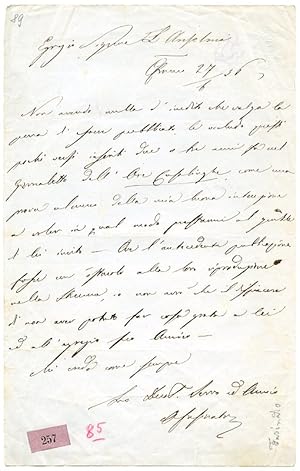 89
Egregio Signore D. Anselmo
Firenze 27/6 56
Non avendo nulla d'inedito che valga la
pena d'essere pubblicato le
pochi versi inseriti due o tre anni fa nel
Giornaletto dell'Ore Casalinghe come una
prova almeno della mia buona intenzione
di voler in qual modo possiammi al gentile
di lei invito — Ove l'antecedente pubblicazione
fosse un ostacolo alla loro riproduzione
nella Strenna, io non avrò che il dispiacere
di non aver potuto far cosa grata a lei
ed all'egregio suo Amico —
Mi creda come sempre
Suo Devot. Servo ed Amico
257
85